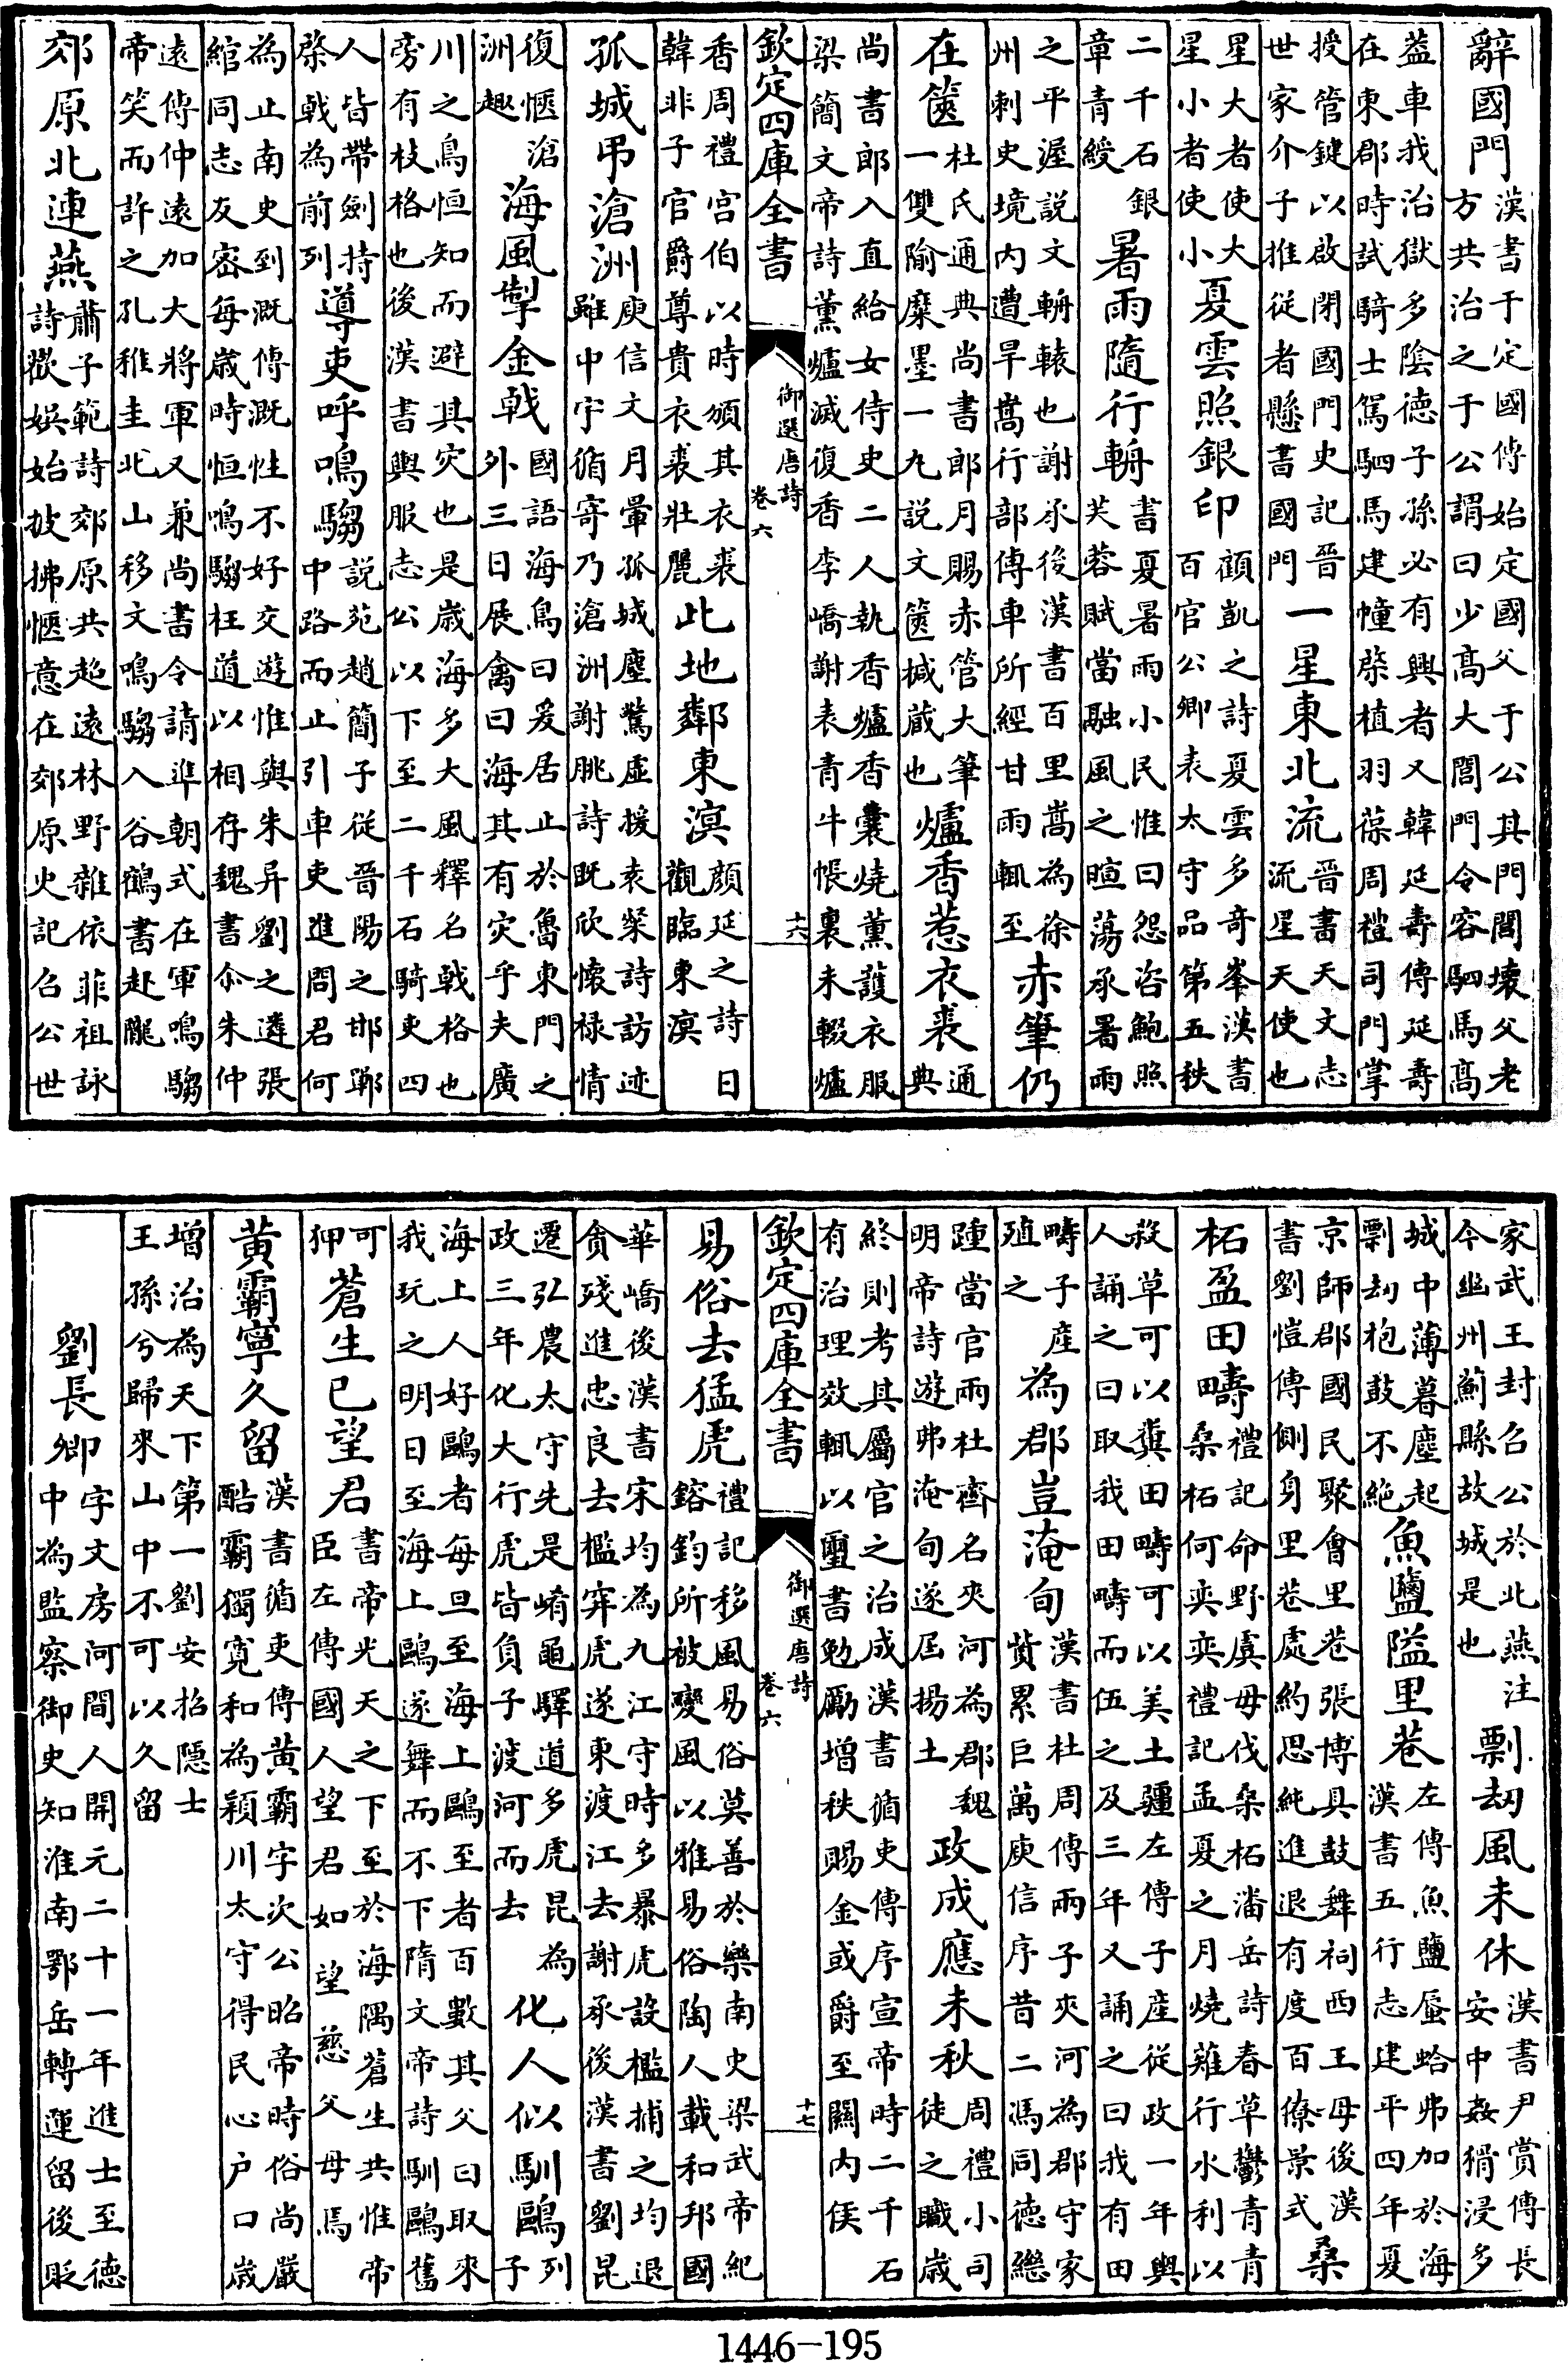 辭國門漢書于定國傳始定國父于公其門閭壞父老方共治之于公謂曰少髙大閭門令容駟馬髙
葢車我治獄多陰德子孫必有興者又韓延壽傳延壽在東郡時試騎士駕駟馬建幢棨植羽葆周禮司門掌
授管鍵以啟閉國門史記晉世家介子推從者懸書國門一星東北流晉書天文志流星天使也
星大者使大星小者使小夏雲照銀印顧凱之詩夏雲多竒峯漢書百官公卿表太守品第五秩
二千石銀章青綬暑雨隨行輈書夏暑雨小民惟曰怨咨鮑照芙蓉賦當融風之暄蕩承暑雨
之平渥説文輈轅也謝承後漢書百里嵩為徐州刺史境内遭旱嵩行部傳車所經甘雨輒至赤筆仍
在篋杜氏通典尚書郎月賜赤管大筆一雙隃糜墨一丸説文篋椷蔵也爐香惹衣裘通典
尚書郎入直給女侍史二人執香爐香囊燒薰護衣服梁簡文帝詩薰爐滅復香李嶠謝表青牛帳裏未輟爐
欽定四庫全書 御選唐詩 卷六 十六
香周禮宫伯以時頒其衣裘韓非子官爵尊貴衣裘壯麗此地鄰東溟顔延之詩日觀臨東溟
孤城弔滄洲庾信文月暈孤城塵驚虚援袁粲詩訪迹雖中宇循寄乃滄洲謝朓詩既欣懐禄情
復愜滄洲趣海風掣金戟國語海鳥曰爰居止於魯東門之外三日展禽曰海其有灾乎夫廣
川之鳥恒知而避其灾也是嵗海多大風釋名戟格也旁有枝格也後漢書輿服志公以下至二千石騎吏四
人皆帶劍持棨戟為前列導吏呼鳴騶説苑趙簡子從晉陽之邯鄲中路而止引車吏進問君何
為止南史到溉傳溉性不好交遊惟與朱异劉之遴張綰同志友宻每嵗時恒鳴騶枉道以相存魏書尒朱仲
遠傳仲遠加大將軍又兼尚書令請凖朝式在軍鳴騶帝笑而許之孔稚圭北山移文鳴騶入谷鶴書赴隴
郊原北連燕蕭子範詩郊原共超遠林野雜依菲祖詠詩歡娱始披拂愜意在郊原史記召公世
家武王封召公於北燕注今幽州薊縣故城是也剽刼風未休漢書尹賞傳長安中姦猾浸多
城中薄暮塵起剽刼枹鼓不絶魚鹽隘里巷左傳魚鹽蜃蛤弗加於海漢書五行志建平四年夏
京師郡國民聚會里巷張博具鼓舞祠西王母後漢書劉愷傳側身里巷處約思純進退有度百僚景式桑
柘盈田疇禮記命野虞毋伐桑柘潘岳詩春草鬱青青桑柘何奕奕禮記孟夏之月燒薙行水利以
殺草可以糞田疇可以美土疆左傳子産從政一年輿人誦之曰取我田疇而伍之及三年又誦之曰我有田
疇子産殖之為郡豈淹旬漢書杜周傳兩子夾河為郡守家貲累巨萬庾信序昔二馮同徳繼
踵當官兩杜齊名夾河為郡魏明帝詩遊弗淹旬遂届揚土政成應未秋周禮小司徒之職嵗
終則考其屬官之治成漢書循吏傳序宣帝時二千石有治理效輒以璽書勉勵増秩賜金或爵至關内侯
欽定四庫全書 御選唐詩 卷六 十七
易俗去猛虎禮記移風易俗莫善於樂南史梁武帝紀鎔鈞所被變風以雅易俗陶人載和邦國
華嶠後漢書宋均為九江守時多暴虎設檻捕之均退貪殘進忠良去檻穽虎遂東渡江去謝承後漢書劉昆
遷弘農太守先是崤黽驛道多虎昆為政三年化大行虎皆負子渡河而去化人似馴鷗列子
海上人好鷗者每旦至海上鷗至者百數其父曰取來我玩之明日至海上鷗遂舞而不下隋文帝詩馴鷗舊
可狎蒼生已望君書帝光天之下至於海隅蒼生共惟帝臣左傳國人望君如望慈父母焉
黄霸寧久留漢書循吏傳黄霸字次公昭帝時俗尚嚴酷霸獨寛和為潁川太守得民心户口嵗
増治為天下第一劉安招隱士王孫兮歸來山中不可以久留
劉長卿字文房河間人開元二十一年進士至徳中為監察御史知淮南鄂岳轉運留後貶
1446-195